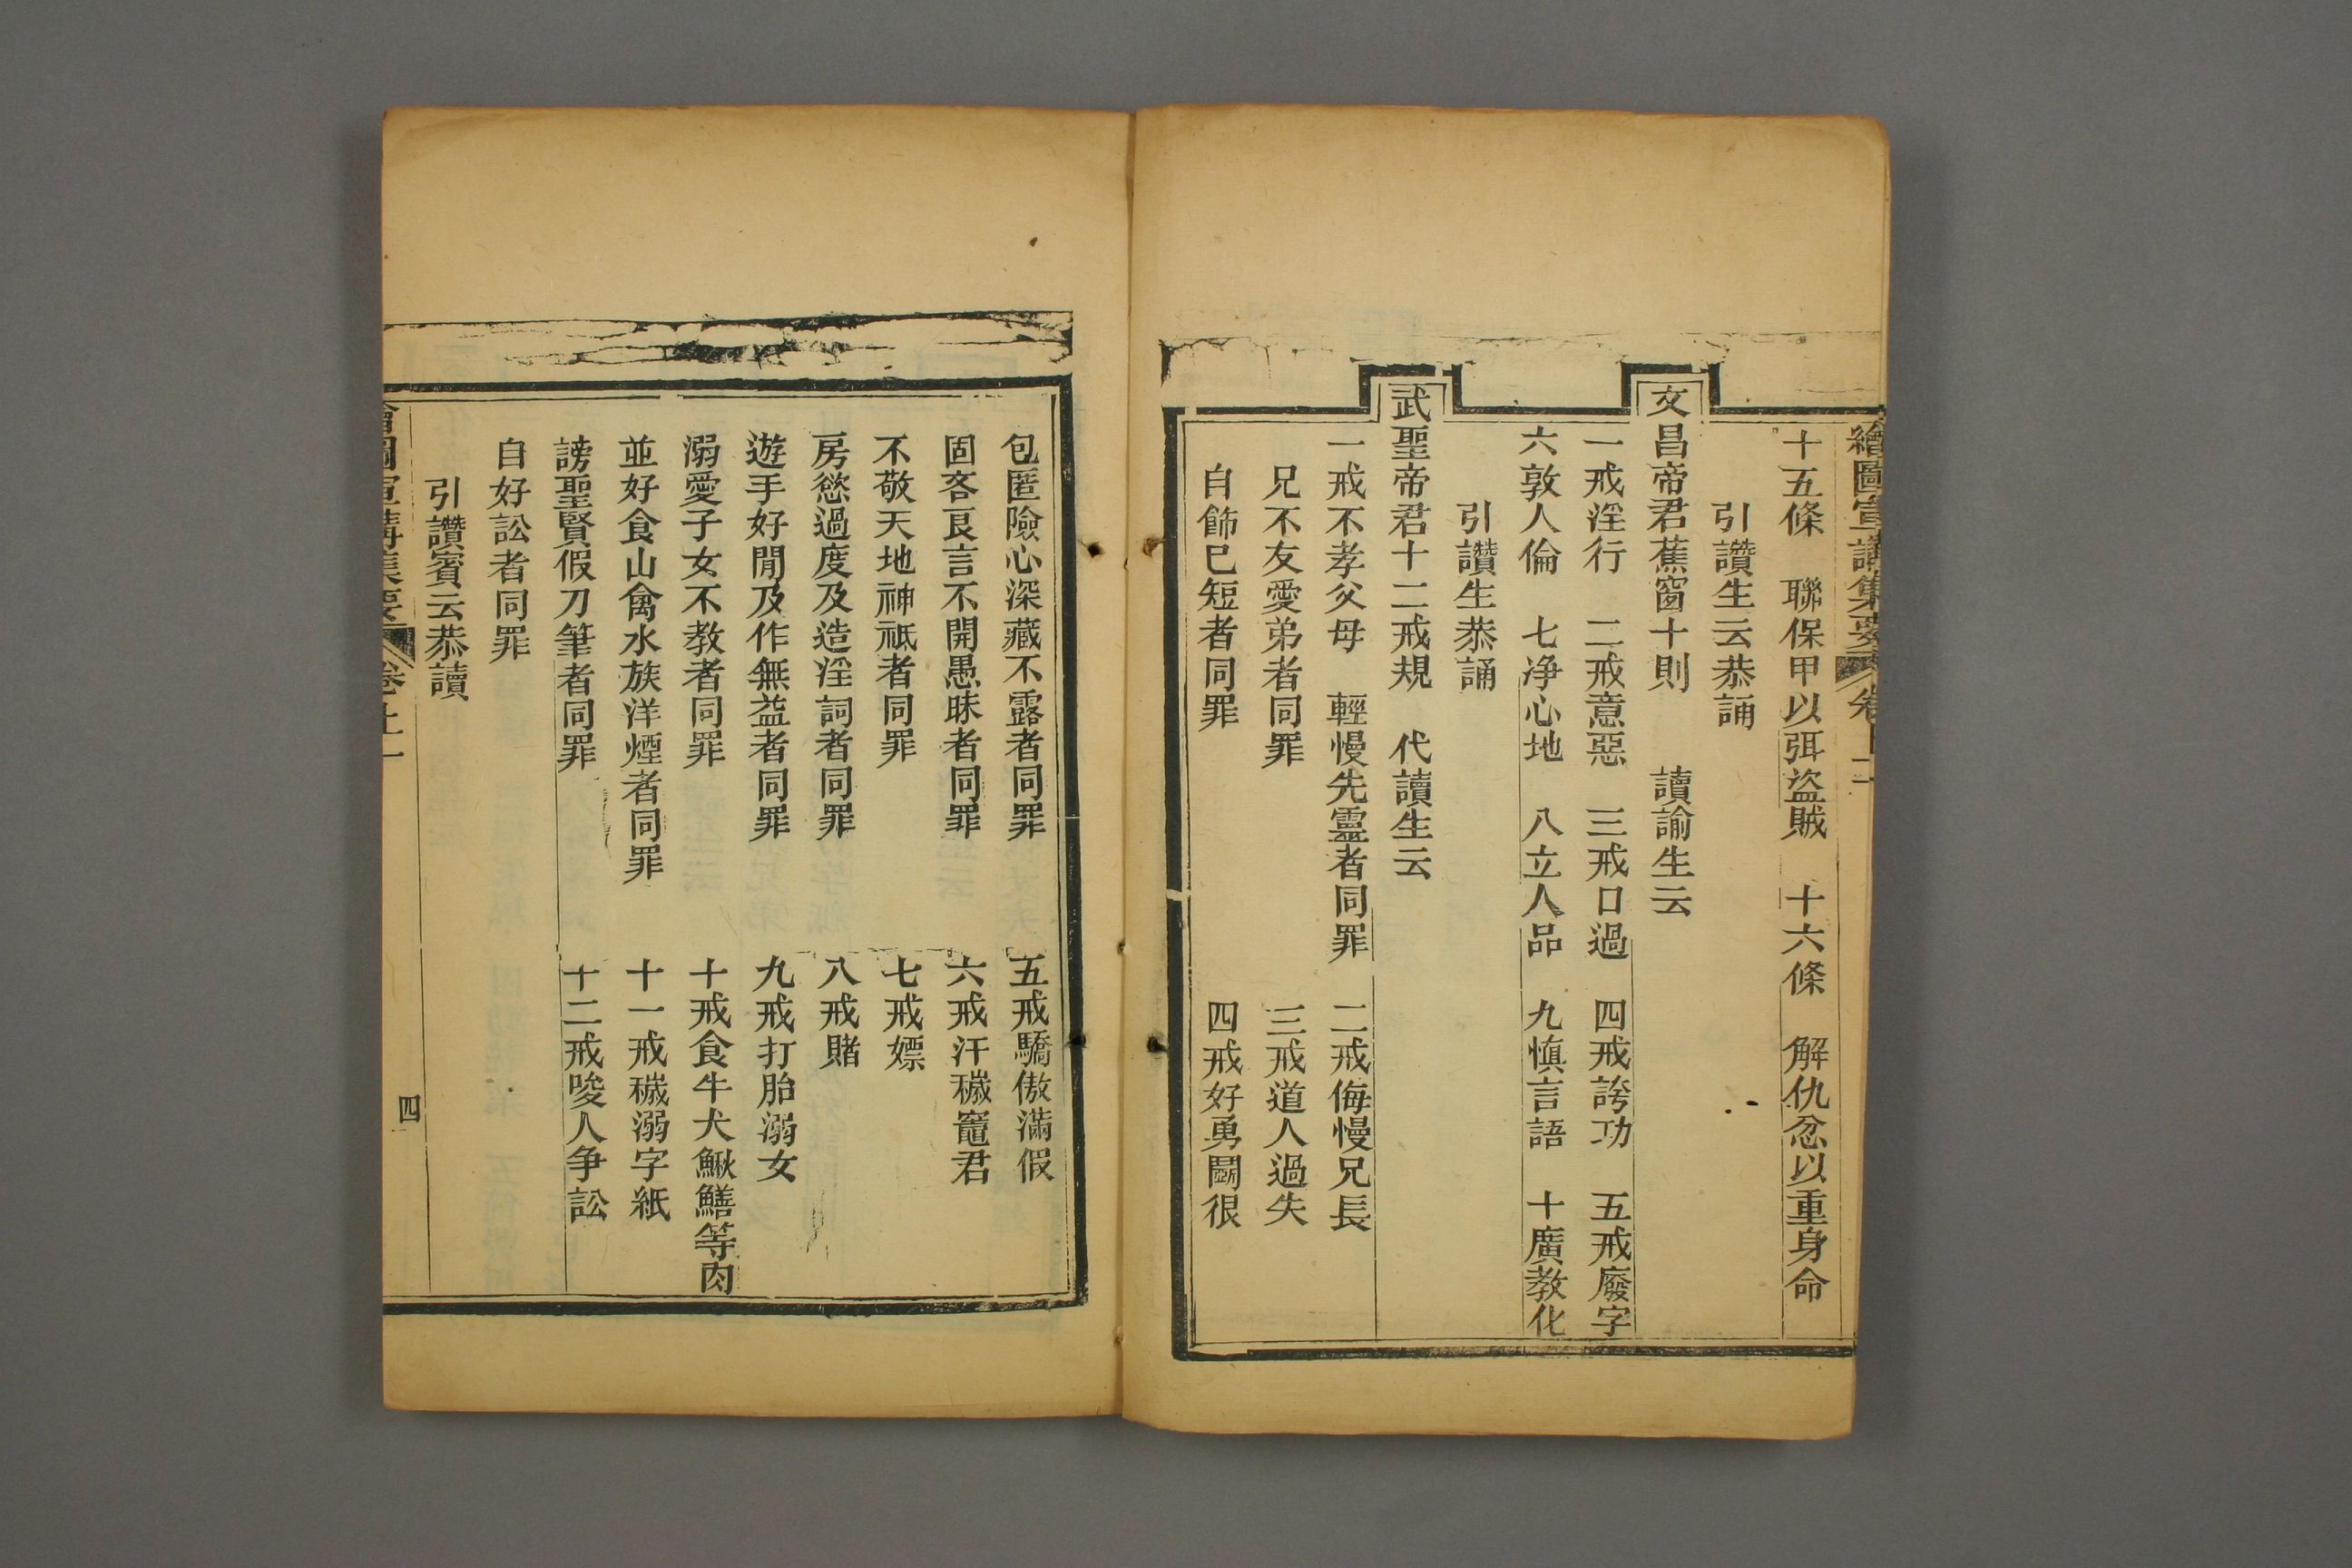 繪圖宣講集要 卷首
十五條 聯保甲以弭盜賊 十六條 解仇忿以重身命
引讚生云恭誦
文昌帝君蕉窗十則 讀諭生云
一戒淫行 二戒意惡 三戒口過 四戒誇功 五戒廢字
六敦人倫 七净心地 八立人品 九慎言語 十廣教化
引讚生恭誦
武聖帝君十二戒規 代讀生云
一戒不孝父母 輕慢先靈者同罪 二戒侮慢兄長
兄不友愛弟者同罪 三戒道人過失
自飾已短者同罪 四戒好勇鬭很
包匿險心深藏不露者同罪 五戒驕傲滿假
固吝良言不開愚昧者同罪 六戒汗穢竈君
不敬天地神祇者同罪 七戒嫖
房慾過度及造淫詞者同罪 八戒賭
遊手好閒及作無益者同罪 九戒打胎溺女
溺愛子女不教者同罪 十戒食牛犬鰍鱔等肉
並好食山禽水族洋煙者同罪 十一戒穢溺字紙
謗聖賢假刀筆者同罪 十二戒唆人争訟
自好訟者同罪
引讚賓云恭讀
繪圖宣講集要 卷 四